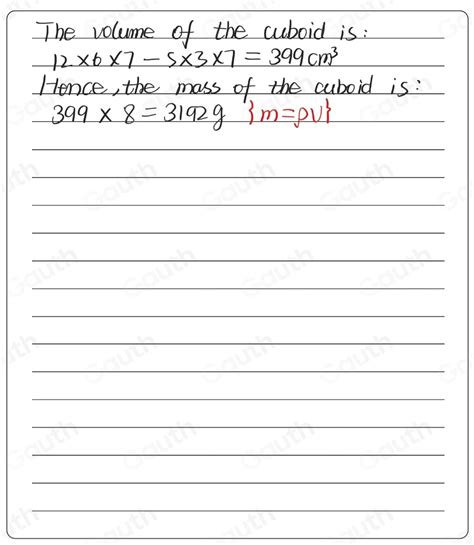 The volume of the cuboid is:
12×6×7-5×3×7=399cm³
Hence, the mass of the cuboid is:
399 × 8 = 3192g {m=ρV}
Gauth